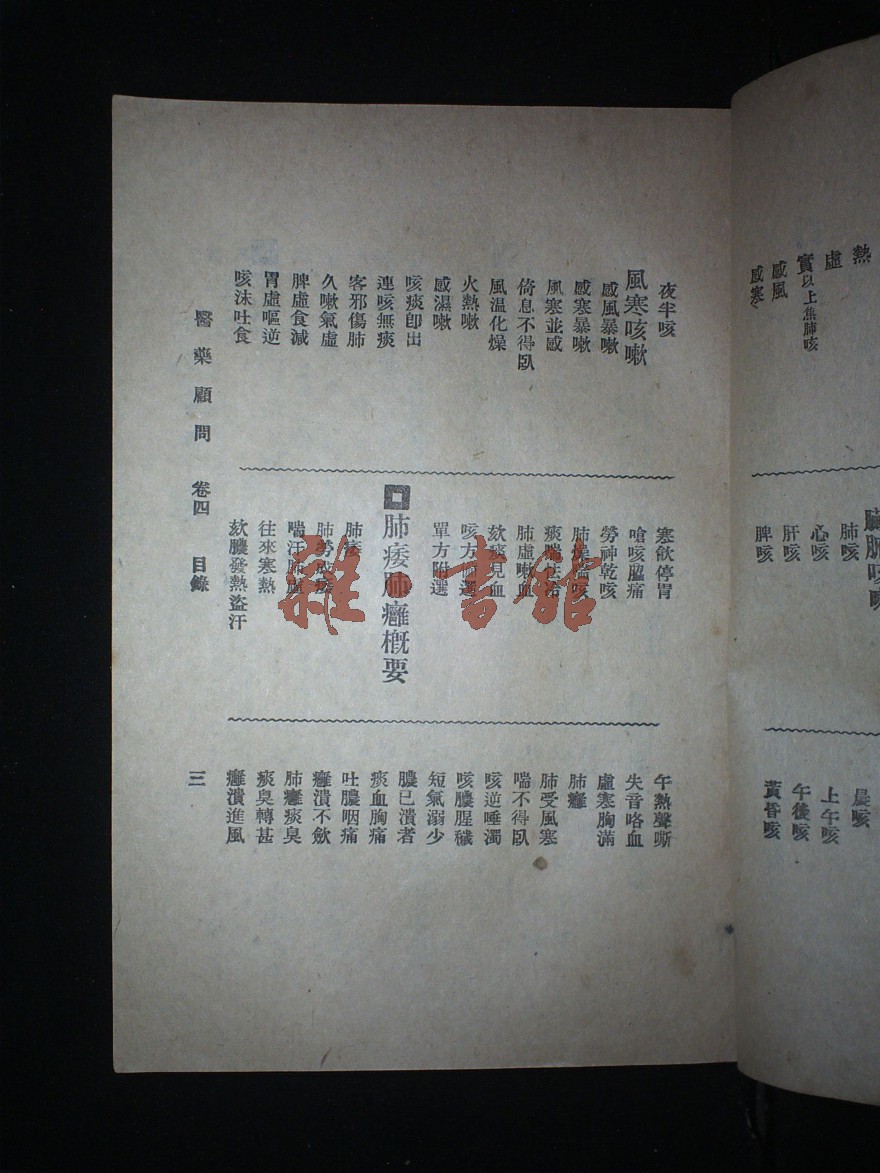 熱
虛
實以上焦肺咳
感風
感寒
肺咳
心咳
肝咳
脾咳
晨咳
上午咳
午後咳
黃昏咳
夜半咳
風寒咳嗽
感風暴嗽
感寒暴嗽
風寒並感
倚息不得臥
風溫化燥
火熱嗽
感濕嗽
咳痰卽出
連咳無痰
客邪傷肺
久嗽氣虛
脾虛食減
胃虛嘔逆
咳沫吐食
寒飲停胃
嗆咳脇痛
勞神乾咳
肺燥喘咳
肺虛嗽血
欬痰見血
咳方附選
單方附選
肺痿肺癰概要
肺痿
喘汗肺
往來寒熱
欬膿發熱盜汗
午熱聲嘶
失音咯血
虛寒胸滿
肺癰
肺受風寒
喘不得臥
咳逆唾濁
咳膿腥穢
短氣溺少
膿已潰者
痰血胸痛
吐膿咽痛
癰潰不斂
肺癰痰臭
痰臭轉甚
癰潰進風
醫藥顧問 卷四 目錄
三
雜·書館